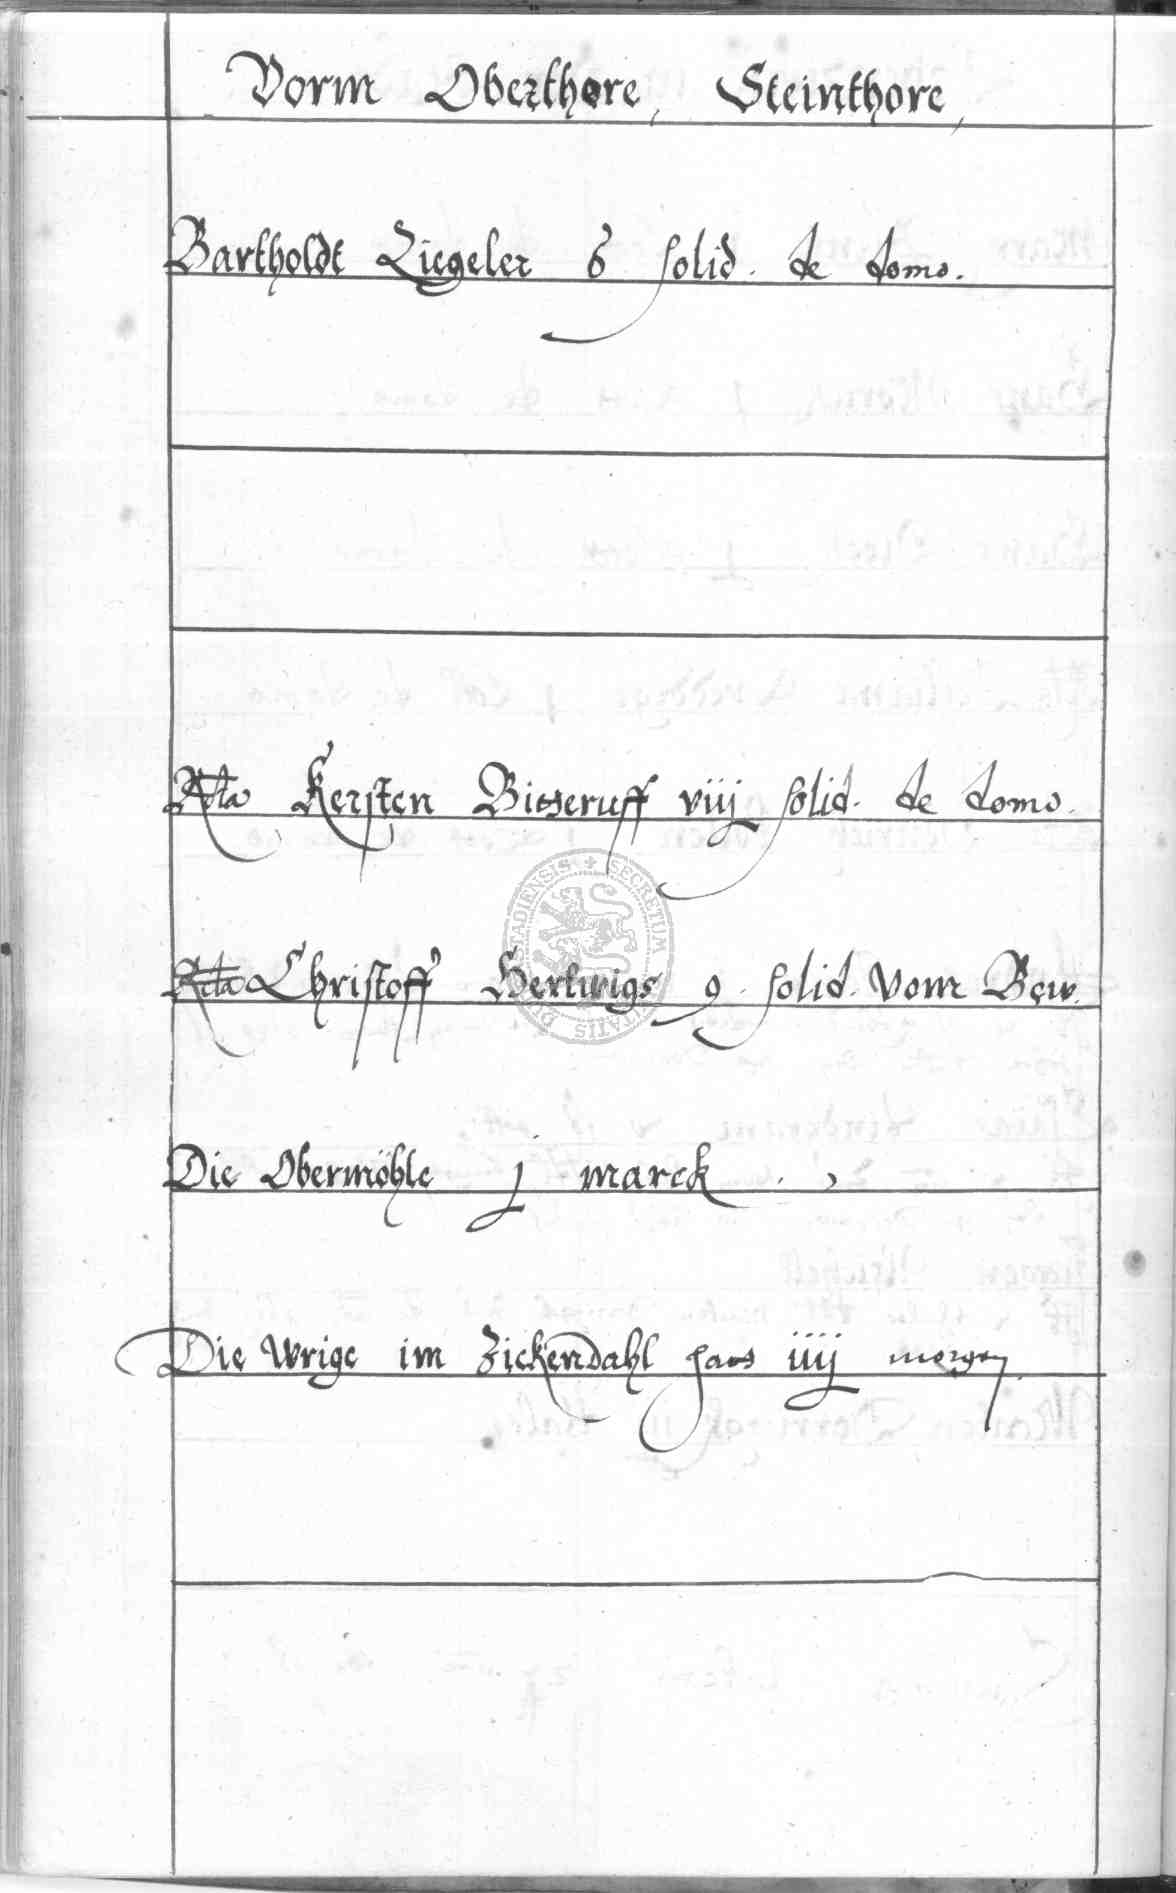 Vorm Oberthore, Steinthore,
Bartholdt Ziegeler 6 solid. de domo.
Rta Kersten Bisseruff viij solid. de domo.
Rta Christoff Hertwigs 9. solid. Vom Bew.
Die Obermöhle j marck.
Die Wrige im Zickendahl iiij morgen
SECRETUM CIVITATIS